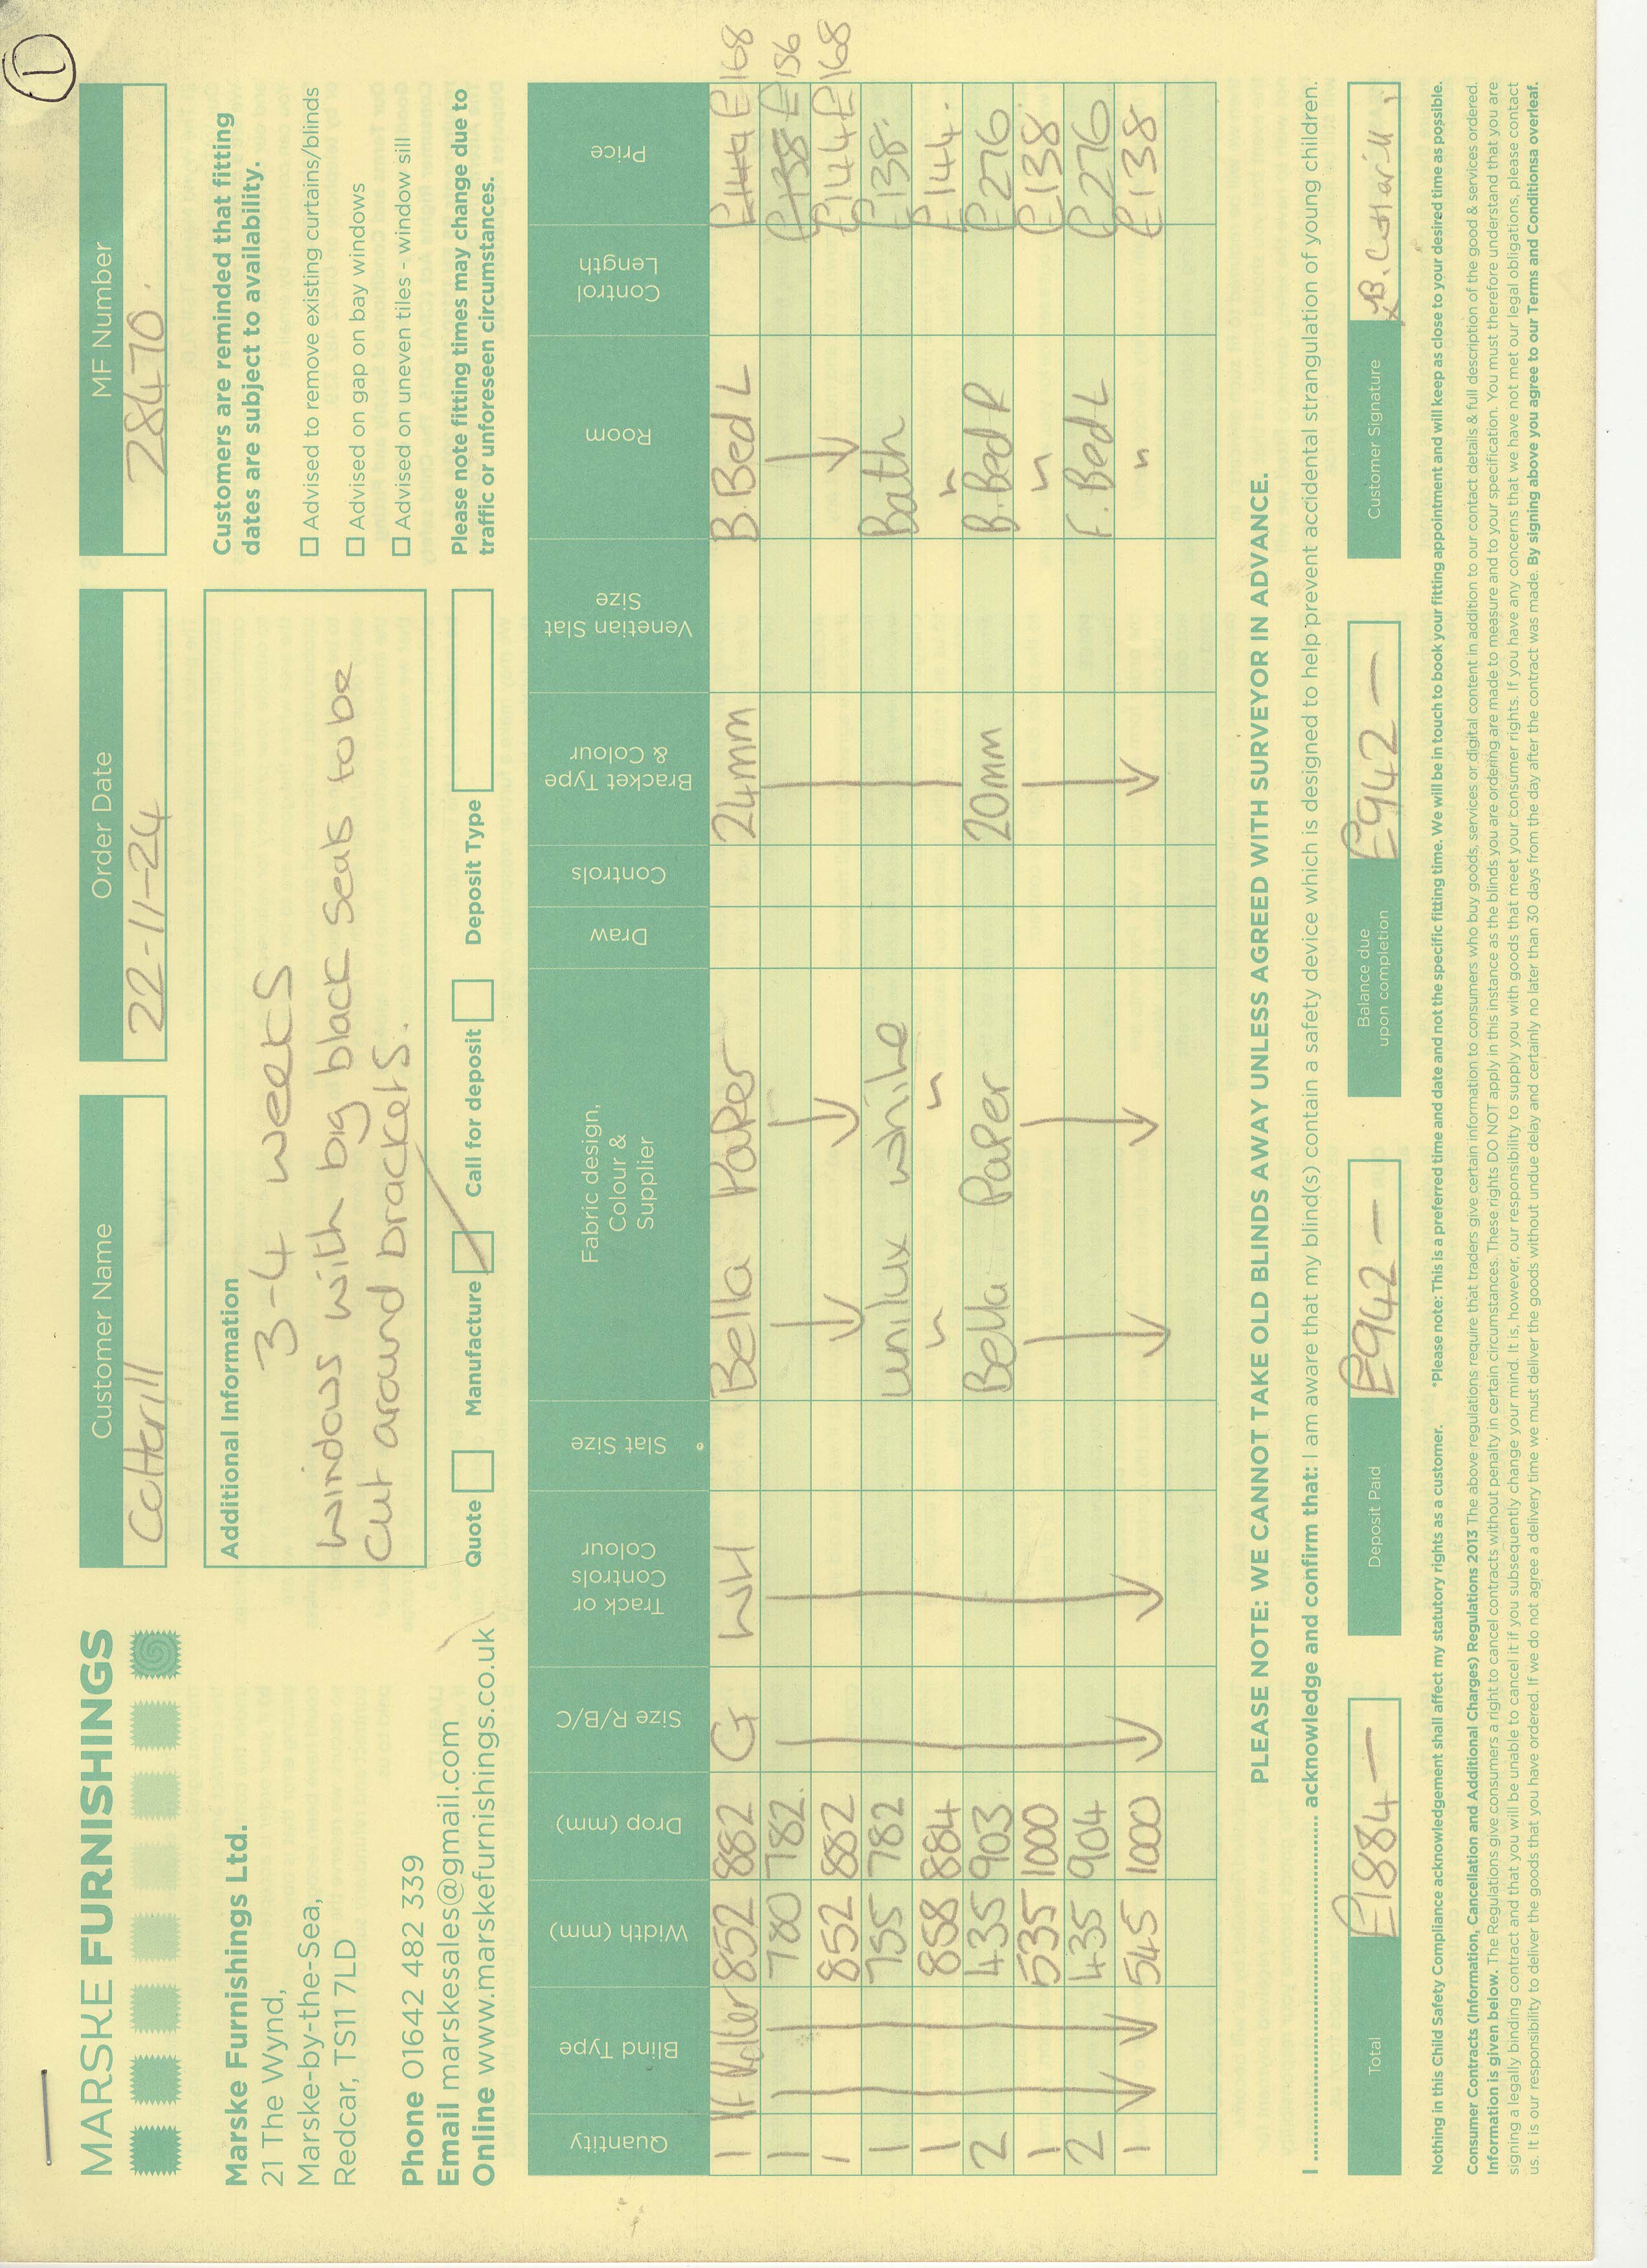 1
MARSKE FURNISHINGS
Marske Furnishings Ltd.
21 The Wynd,
Marske-by-the-Sea,
Redcar, TS11 7LD
Phone 01642 482 339
Email marskesales@gmail.com
Online www.marskefurnishings.co.uk
Customer Name
Cotterill
Order Date
22-11-24
MF Number
28470.
Additional Information
3-4 weeks
windows with big black seals to be
cut around brackets.
Customers are reminded that fitting
dates are subject to availability.
Advised to remove existing curtains/blinds
Advised on gap on bay windows
Advised on uneven tiles - window sill
Quote Manufacture Call for deposit Deposit Type
Please note fitting times may change due to
traffic or unforeseen circumstances.
Quantity Blind Type Width (mm) Drop (mm) Size R/B/C Track or Controls Colour Slat Size Fabric design, Colour & Supplier Draw Controls Bracket Type & Colour Venetian Slat Size Room Control Length Price
1 Roller 852 882 G WH Bella Paper 24mm B.Bed L £144 £168
1 780 782 £138 £156
1 852 882 £144 £168
1 755 782 unilux white Bath £138.
1 858 884 " " " £144.
2 435 903 Bella Paper 20mm B.Bed R £276
1 535 1000 " £138
2 435 904 F.Bed L £276
1 545 1000 " £138
PLEASE NOTE: WE CANNOT TAKE OLD BLINDS AWAY UNLESS AGREED WITH SURVEYOR IN ADVANCE.
I .......... acknowledge and confirm that: I am aware that my blind(s) contain a safety device which is designed to help prevent accidental strangulation of young children.
Total
£1884 —
Deposit Paid
£942 —
Balance due
upon completion
£942 —
Customer Signature
x B. Cotterill.
Nothing in this Child Safety Compliance acknowledgement shall affect my statutory rights as a customer. *Please note: This is a preferred time and date and not the specific fitting time. We will be in touch to book your fitting appointment and will keep as close to your desired time as possible.
Consumer Contracts (Information, Cancellation and Additional Charges) Regulations 2013 The above regulations require that traders give certain information to consumers who buy goods, services or digital content in addition to our contact details & full description of the good & services ordered.
Information is given below. The Regulations give consumers a right to cancel contracts without penalty in certain circumstances. These rights DO NOT apply in this instance as the blinds you are ordering are made to measure and to your specification. You must therefore understand that you are
signing a legally binding contract and that you will be unable to cancel it if you subsequently change your mind. It is, however, our responsibility to supply you with goods that meet your consumer rights. If you have any concerns that we have not met our legal obligations, please contact
us. It is our responsibility to deliver the goods that you have ordered. If we do not agree a delivery time we must deliver the goods without undue delay and certainly no later than 30 days from the day after the contract was made. By signing above you agree to our Terms and Conditionsa overleaf.